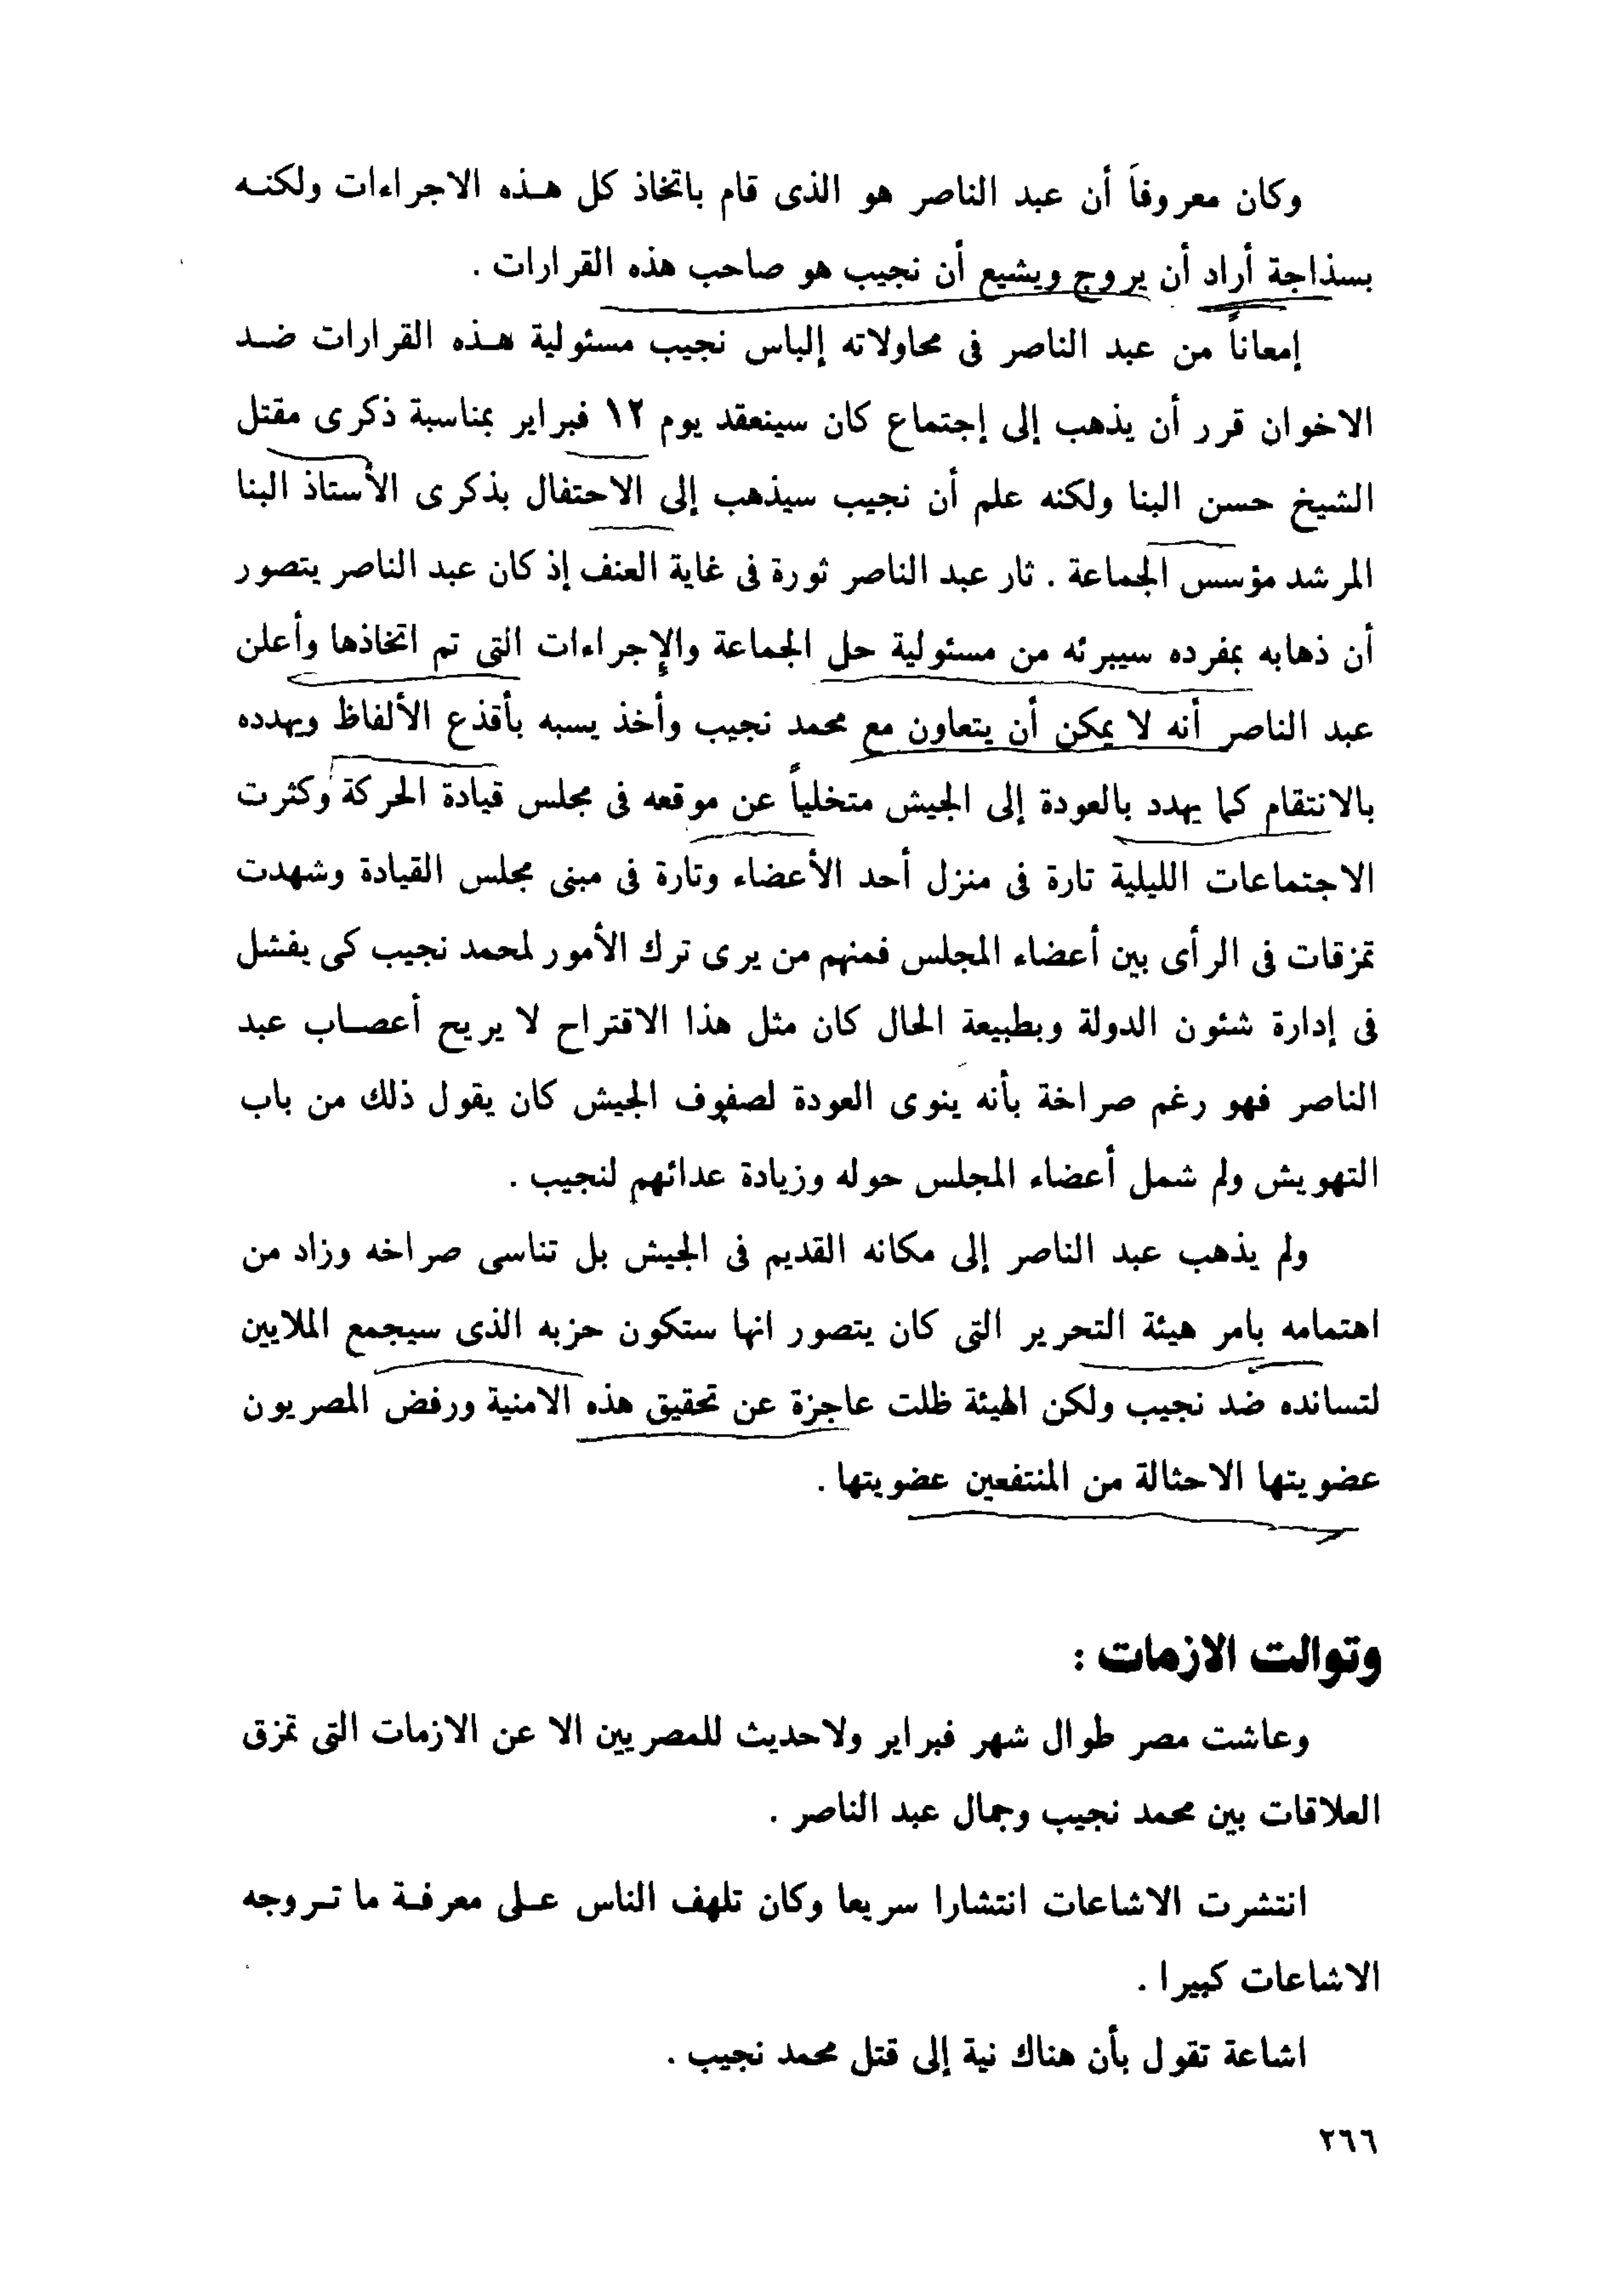 وكان معروفاً أن عبد الناصر هو الذى قام باتخاذ كل هذه الاجراءات ولكنه
بسذاجة أراد أن يروج ويشيع أن نجيب هو صاحب هذه القرارات .
إمعاناً من عبد الناصر فى محاولاته إلباس نجيب مسئولية هذه القرارات ضد
الاخوان قرر أن يذهب إلى إجتماع كان سينعقد يوم ١٢ فبراير بمناسبة ذكرى مقتل
الشيخ حسن البنا ولكنه علم أن نجيب سيذهب إلى الاحتفال بذكرى الأستاذ البنا
المرشد مؤسس الجماعة . ثار عبد الناصر ثورة فى غاية العنف إذ كان عبد الناصر يتصور
أن ذهابه بمفرده سيبرئه من مسئولية حل الجماعة والإجراءات التى تم اتخاذها وأعلن
عبد الناصر أنه لا يمكن أن يتعاون مع محمد نجيب وأخذ يسبه بأقذع الألفاظ ويهدده
بالانتقام كما يهدد بالعودة إلى الجيش متخلياً عن موقعه فى مجلس قيادة الحركة وكثرت
الاجتماعات الليلية تارة فى منزل أحد الأعضاء وتارة فى مبنى مجلس القيادة وشهدت
تمزقات فى الرأى بين أعضاء المجلس فمنهم من يرى ترك الأمور لمحمد نجيب كى يفشل
فى إدارة شئون الدولة وبطبيعة الحال كان مثل هذا الاقتراح لا يريح أعصاب عبد
الناصر فهو رغم صراخة بأنه ينوى العودة لصفوف الجيش كان يقول ذلك من باب
التهويش ولم شمل أعضاء المجلس حوله وزيادة عدائهم لنجيب .
ولم يذهب عبد الناصر إلى مكانه القديم فى الجيش بل تناسى صراخه وزاد من
اهتمامه بامر هيئة التحرير التى كان يتصور انها ستكون حزبه الذى سيجمع الملايين
لتسانده ضد نجيب ولكن الهيئة ظلت عاجزة عن تحقيق هذه الامنية ورفض المصريون
عضويتها الاحثالة من المنتفعين عضويتها .
وتوالت الازمات :
وعاشت مصر طوال شهر فبراير ولاحديث للمصريين الا عن الازمات التى تمزق
العلاقات بين محمد نجيب وجمال عبد الناصر .
انتشرت الاشاعات انتشارا سريعا وكان تلهف الناس على معرفة ما تروجه
الاشاعات كبيرا .
اشاعة تقول بأن هناك نية إلى قتل محمد نجيب .
٢٦٦